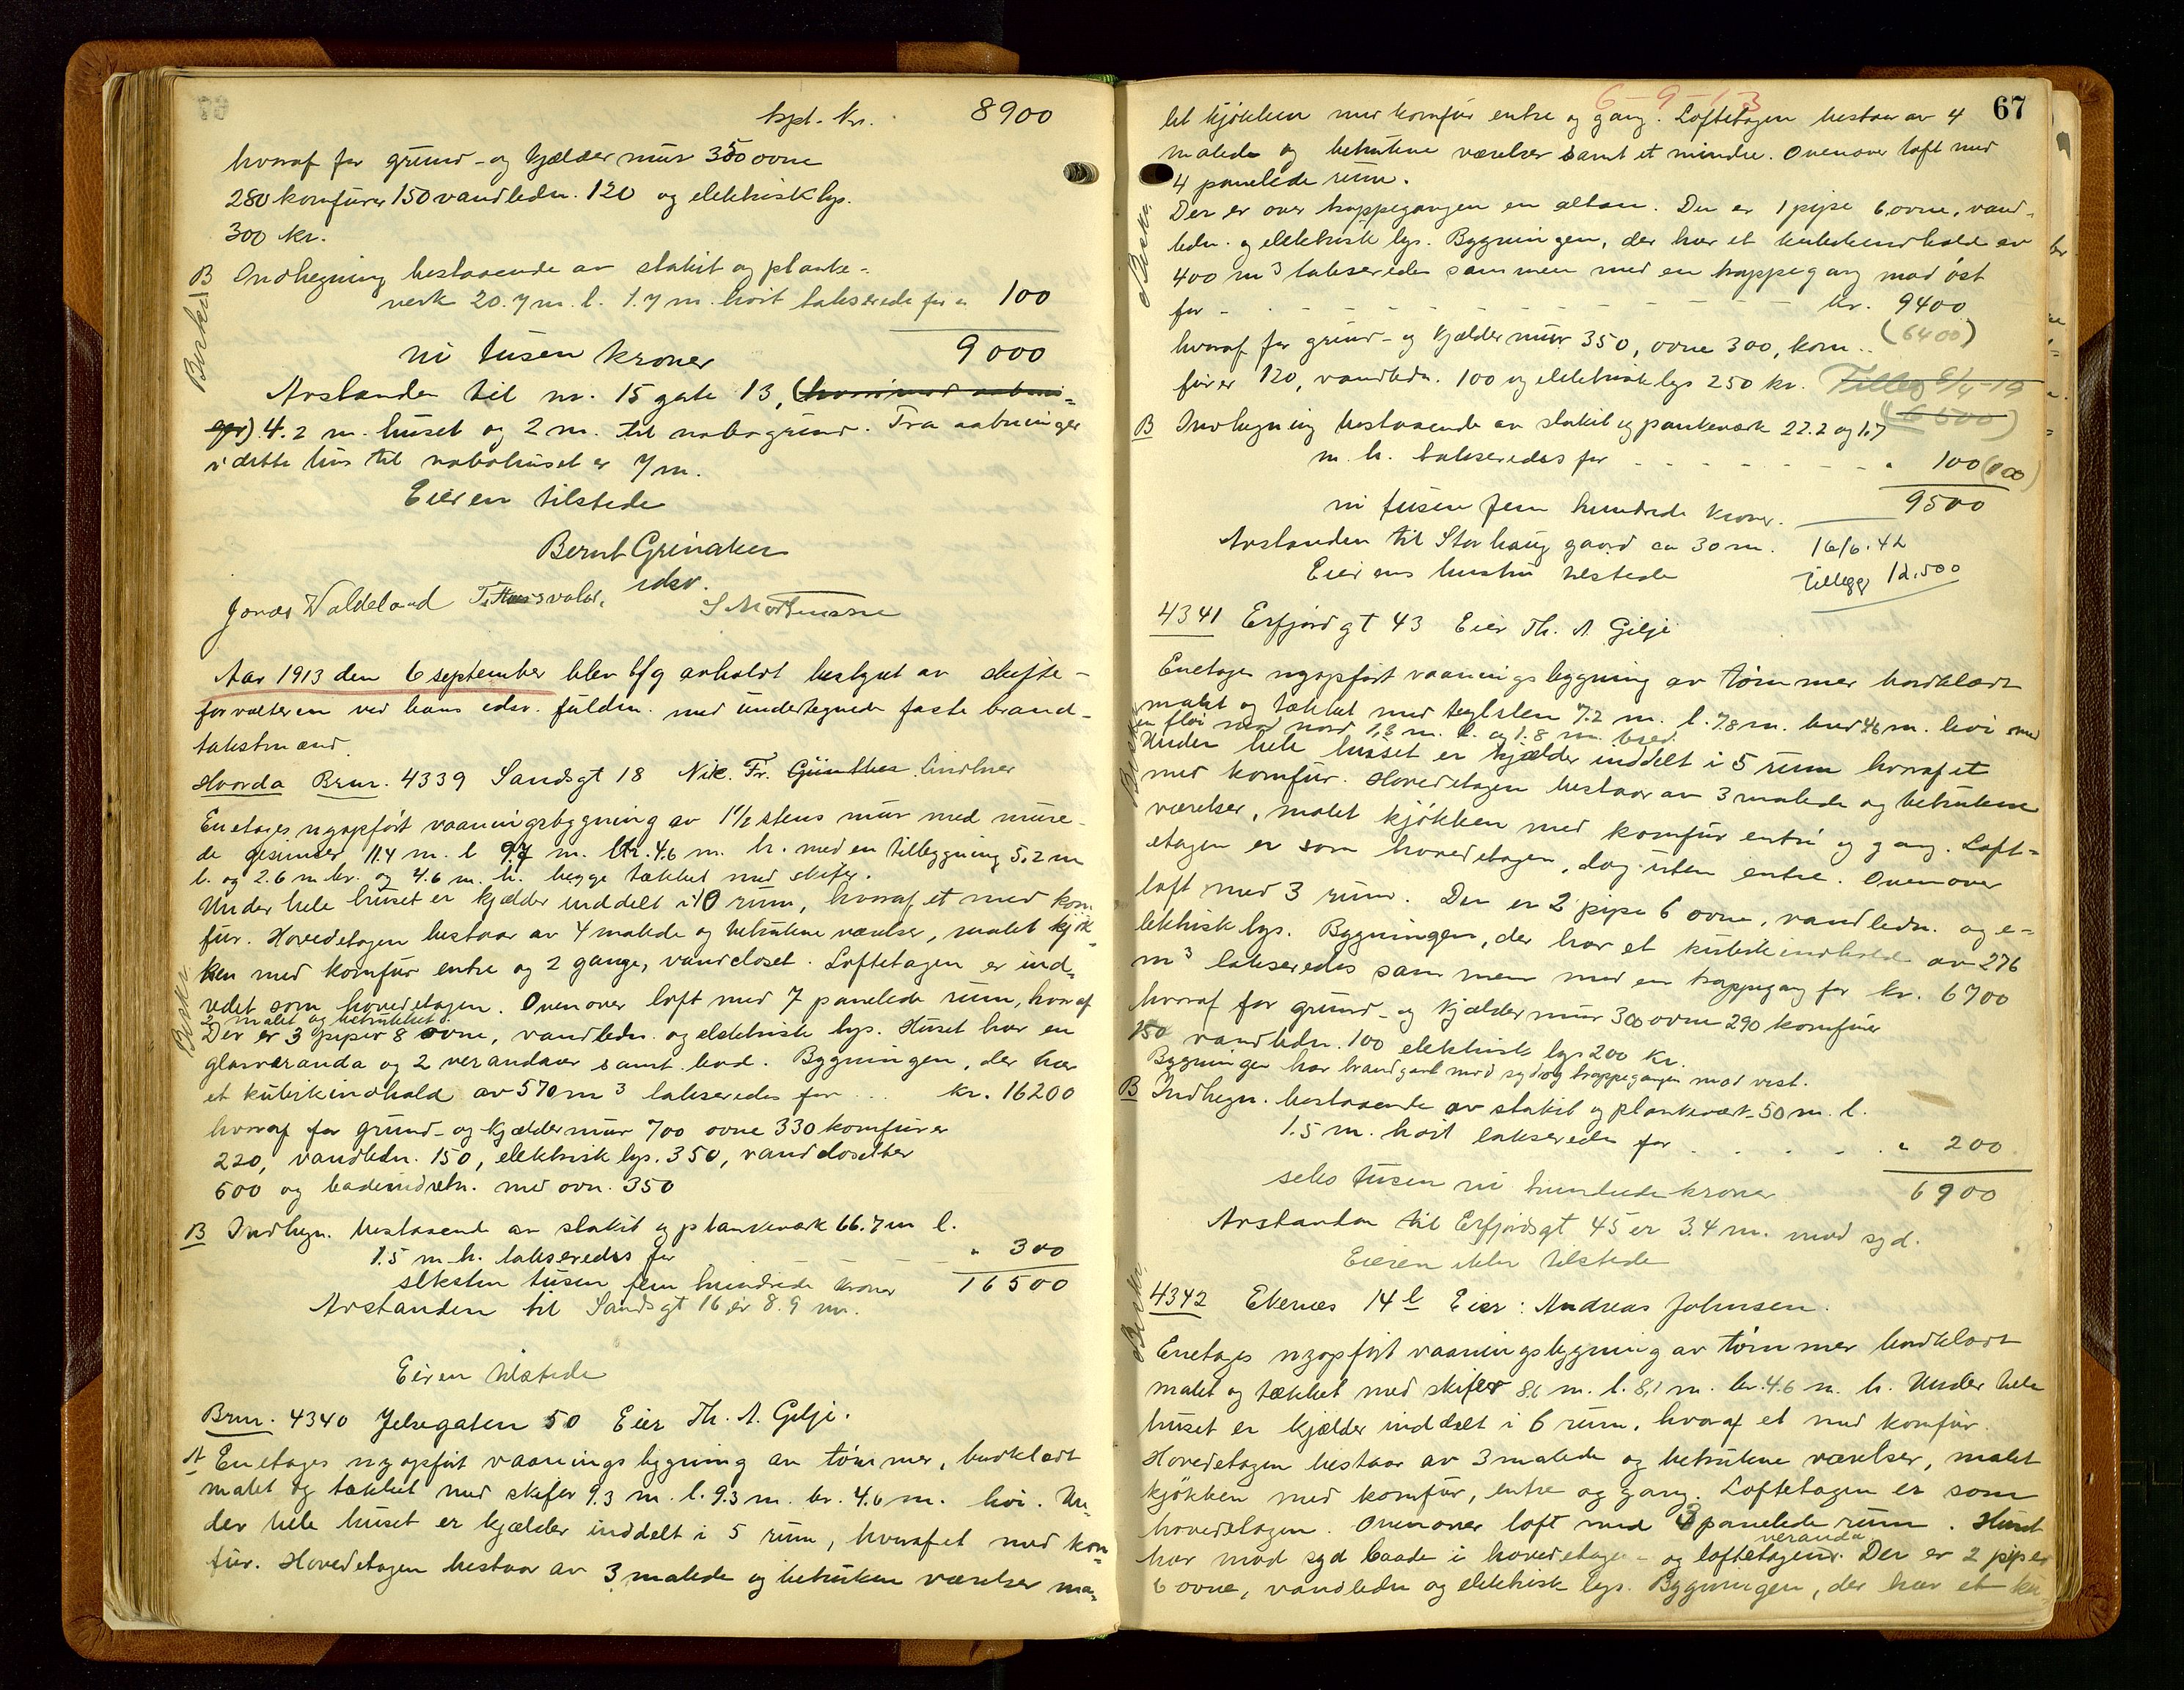 trpt. Kr. 8900
hvoraf for grund- og kjælder mur 350 ovne
280 komfurer 150 vandledn. 120 og elektrisk lys.
300 kr.
B Indhegning bestaaende av stakit og planke-
verk 20.7 m. l. 1.7 m. höit takserede for " 100
ni tusen kroner 9000
Avstanden til nr. 15 gate 13,
4.2 m. huset og 2 m. til nabogrund. Fra aabninger
i dette hus til nabohuset er 7 m.
Eieren tilstede
Bernt Grinaker
edsv.
Jonas Waldeland T. Thusvold. S Mortensen
Aar 1913 den 6 september blev bfg avholdt bestyret av skifte-
forvalteren ved hans edsv. fuldm. med undertegnede faste brand-
takstmænd.
Hvorda Brnr. 4339 Sandsgt 18 Nic. Fr. Günther Lindner
Enetages nyopført vaaningsbygning av 1 1/2 stens mur med mure-
de gesimser 11.4 m. l 9.7 m. br. 4.6 m. h. med en tilbygning 5.2 m
l. og 2.6 m br. og 4.6 m. h. begge tækket med skifer.
Under hele huset er kjælder inddelt i 10 rum, hvoraf et med kom
fur. Hovedetagen bestaar av 4 malede og betrukne værelser, malet kjök-
ken med komfur entre og 2 gange, vandcloset. Loftetagen er ind-
redet som hovedetagen. Ovenover loft med 7 panelede rum, hvoraf
2 malet og betrukket.
Der er 3 piper 8 ovne, vandledn. og elektrisk lys. Huset har en
glasveranda og 2 verandaer samt bod. Bygningen, der har
et kubikindhold av 570 m3 takseredes for ... kr. 16200
hvoraf for grund- og kjældermur 700 ovne 330 komfurer
220, vandledn. 150, elektrisk lys. 350, vandclosetter
600 og badeindretn. med ovn. 350
B Indhegn. bestaaende av stakit og plankeværk 66.7 m l.
1.5 m. h. takseredes for " 300
seksten tusen fem hundrede kroner 16500
Avstanden til Sandsgt 16 er 8.9 m.
Eieren tilstede
Brnr. 4340 Jelsegaten 50 Eier Th. A. Gilje.
A Enetages nyopført vaanings bygning av tömmer, bordklædt
malet og tækket med skifer 9.3 m. l. 9.3 m. br. 4.6 m. höi. Un-
der hele huset er kjælder inddelt i 5 rum, hvoraf et med kom-
fur. Hovedetagen bestaar av 3 malede og betrukne værelser ma-
Beskr.
6-9-13
67
let kjökken med komfur entre og gang. Loftetagen bestaar av 4
malede og betrukne værelser samt et mindre. Ovenover loft med
4 panelede rum.
Der er over trappegangen en altan. Der er 1 pipe 6 ovne, vand-
ledn. og elektrisk lys. Bygningen, der har et kubikindhold av
400 m3 takseredes sammen med en trappegang mod öst
for - - - kr. 9400
(6400)
hvoraf for grund- og kjælder mur 350, ovne 300, kom-
furer 120, vandledn. 100 og elektrisk lys 250 kr.
B Indhegning bestaaende av stakit og plankeværk 22.2 og 1.7
m. h. takseredes for - - - " 100
ni tusen fem hundrede kroner. 9500
Avstanden til Storhaug gaard ca 30 m. 16/6.42
Eierens hustru tilstede Tillegg 12.500
4341 Erfjord gt 43 Eier Th. A Gilje
Enetages nyopført vaanings bygning av tömmer bordklædt
malet og tækket med teglsten 7.2 m. l. 7.8 m. bred 4.6 m. höi med
en flöi mod nord 1.8 m. l. og 1.8 m. bred.
Under hele huset er kjælder inddelt i 5 rum hvoraf et
med komfur. Hovedetagen bestaar av 3 malede og betrukne
værelser, malet kjökken med komfur entré og gang. Loft-
etagen er som hovedetagen, dog uten entre. Ovenover
loft med 3 rum. Der er 2 pipe 6 ovne, vandledn. og e-
lektrisk lys. Bygningen, der har et kubikindhold av 276
m3 takseredes sammen med en trappegang for kr. 6700
hvoraf for grund- og kjælder mur 300 ovne 290 komfurer
150 vandledn. 100 elektrisk lys 200 kr.
Bygningen har brandgavl mod syd og trappegangen mod vest.
B Indhegn. bestaaende av stakit og plankeværk 50 m. l.
1.5 m. höit takseredes for - - - " 200
seks tusen ni hundrede kroner 6900
Avstanden til Erfjordsgt 45 er 3.4 m. mod syd.
Eieren ikke tilstede
4342 Ekenæs 14 b Eier: Andreas Johnsen.
Enetages nyopført vaaningsbygning av tömmer bordklædt
malet og tækket med skifer 8.6 m. l. 8.1 m. br. 4.6 m. h. Under hele
huset er kjælder inddelt i 6 rum, hvoraf et med komfur.
Hovedetagen bestaar av 3 malede og betrukne værelser, malet
kjökken med komfur, entre og gang. Loftetagen er som
hovedetagen. Ovenover loft med 3 panelede rum. Huset
har mod syd baade i hovedetagen og loftetagen veranda. Der er 2 piper
6 ovne, vandledn og elektrisk lys. Bygningen, der har et ku-